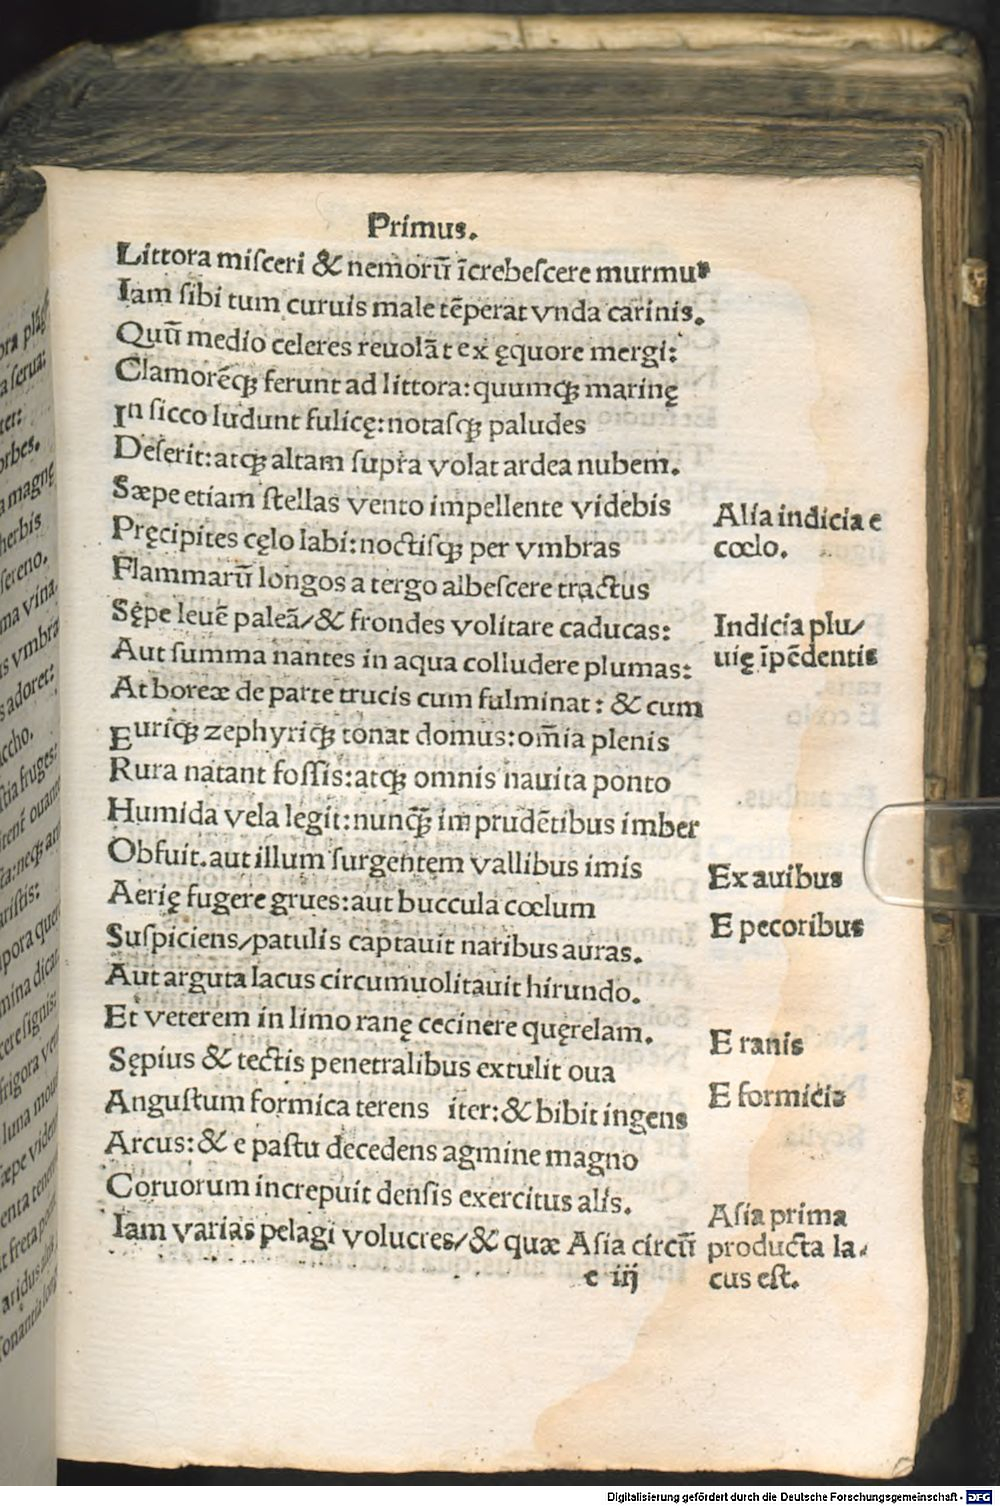 Primus.
Littora miſceri & nemorū īcrebeſcere murmur
Iam ſibi tum curuis male tēperat vnda carinis.
Quū medio celeres reuolāt ex ęquore mergi:
Clamorēq; ferunt ad littora: quumq; marinę
In ſicco ludunt fulicę: notaſq; paludes
Deſerit: atq; altam ſupra volat ardea nubem.
Sæpe etiam ſtellas vento impellente videbis
Pręcipites cęlo labi: noctiſq; per vmbras
Flammarū longos a tergo albeſcere tractus
Sępe leuē paleā/& frondes volitare caducas:
Aut ſumma nantes in aqua colludere plumas:
At boreæ de parte trucis cum fulminat: & cum
Euriq; zephyriq; tonat domus: om̄ia plenis
Rura natant foſſis: atq; omnis nauita ponto
Humida vela legit: nunq̄; imprudētibus imber
Obfuit. aut illum ſurgentem vallibus imis
Aerię fugere grues: aut buccula cœlum
Suſpiciens/patulis captauit naribus auras.
Aut arguta lacus circumuolitauit hirundo.
Et veterem in limo ranę cecinere quęrelam.
Sępius & tectis penetralibus extulit oua
Anguſtum formica terens iter: & bibit ingens
Arcus: & e paſtu decedens agmine magno
Coruorum increpuit denſis exercitus alis.
Iam varias pelagi volucres/& quæ Aſia circū
c iij
Alia indicia e
cœlo.
Indicia plu/
uię īpēdentis
Ex auibus
E pecoribus
E ranis
E formicis
Aſia prima
producta la/
cus eſt.
ma vina.
ccho.
Digitalisierung gefördert durch die Deutsche Forschungsgemeinschaft - DFG